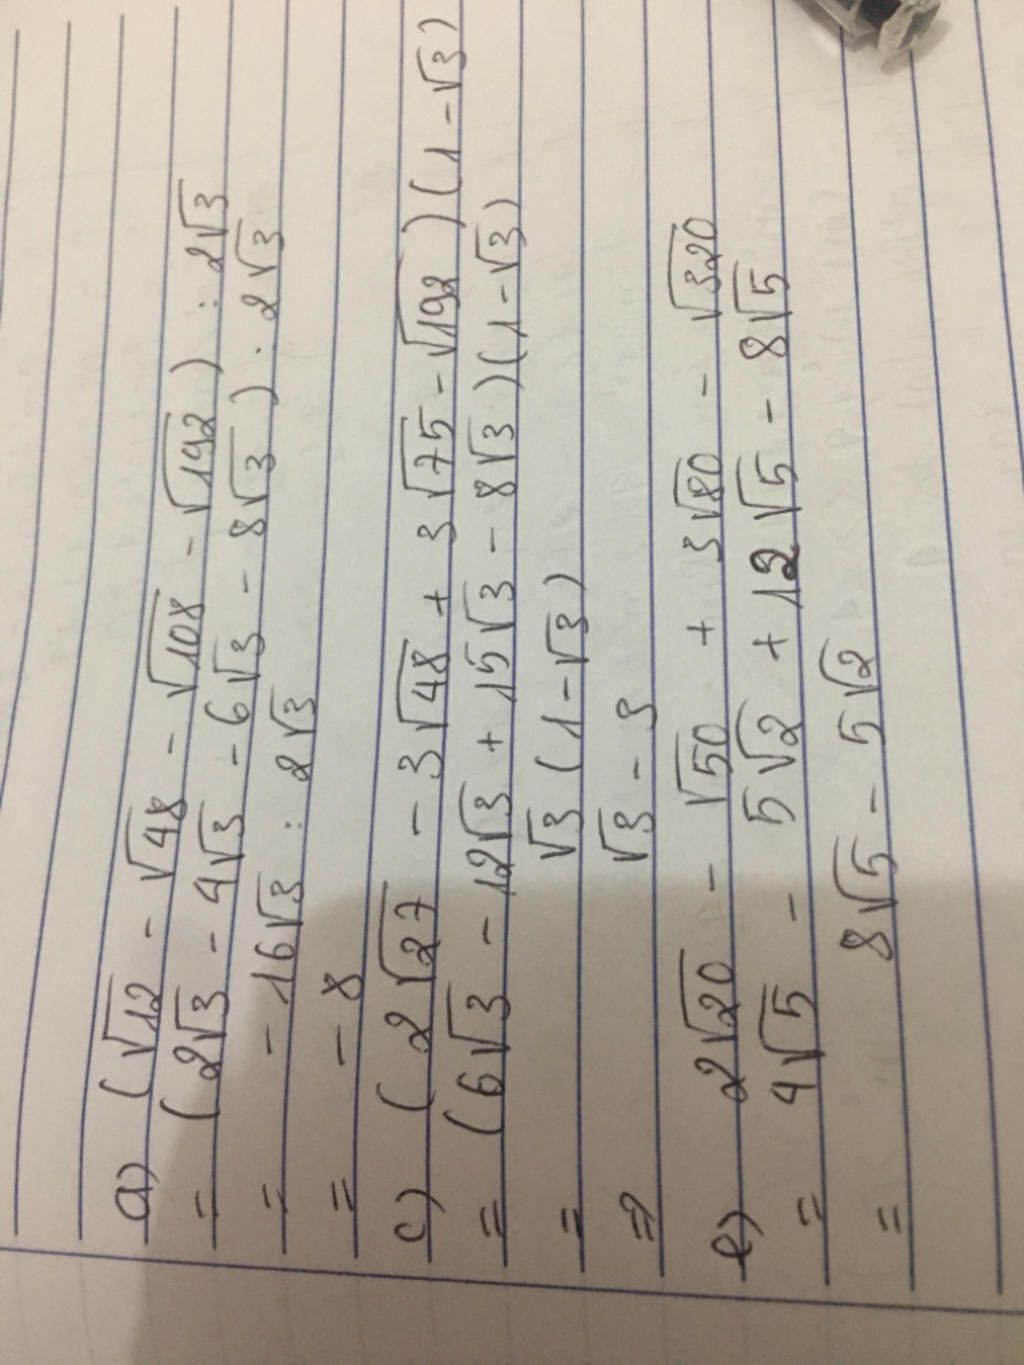 a) (√12 - √48 - √108 - √192) : 2√3
= (2√3 - 4√3 - 6√3 - 8√3) : 2√3
= - 16√3 : 2√3
= - 8
c) (2√27 - 3√48 + 3√75 - √192)(1 - √3)
= (6√3 - 12√3 + 15√3 - 8√3)(1 - √3)
= √3 (1 - √3)
= √3 - 3
e) 2√20 - √50 + 3√80 - √320
= 4√5 - 5√2 + 12√5 - 8√5
= 8√5 - 5√2